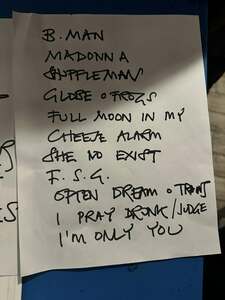 B. MAN
MADONNA
SHUFFLEMAN
GLOBE O FROGS
FULL MOON IN MY
CHEESE ALARM
SHE NO EXIST
F. S. G.
OFTEN DREAM O TRAINS
I PRAY DRUNK / JUDGE
I'M ONLY YOU
ES